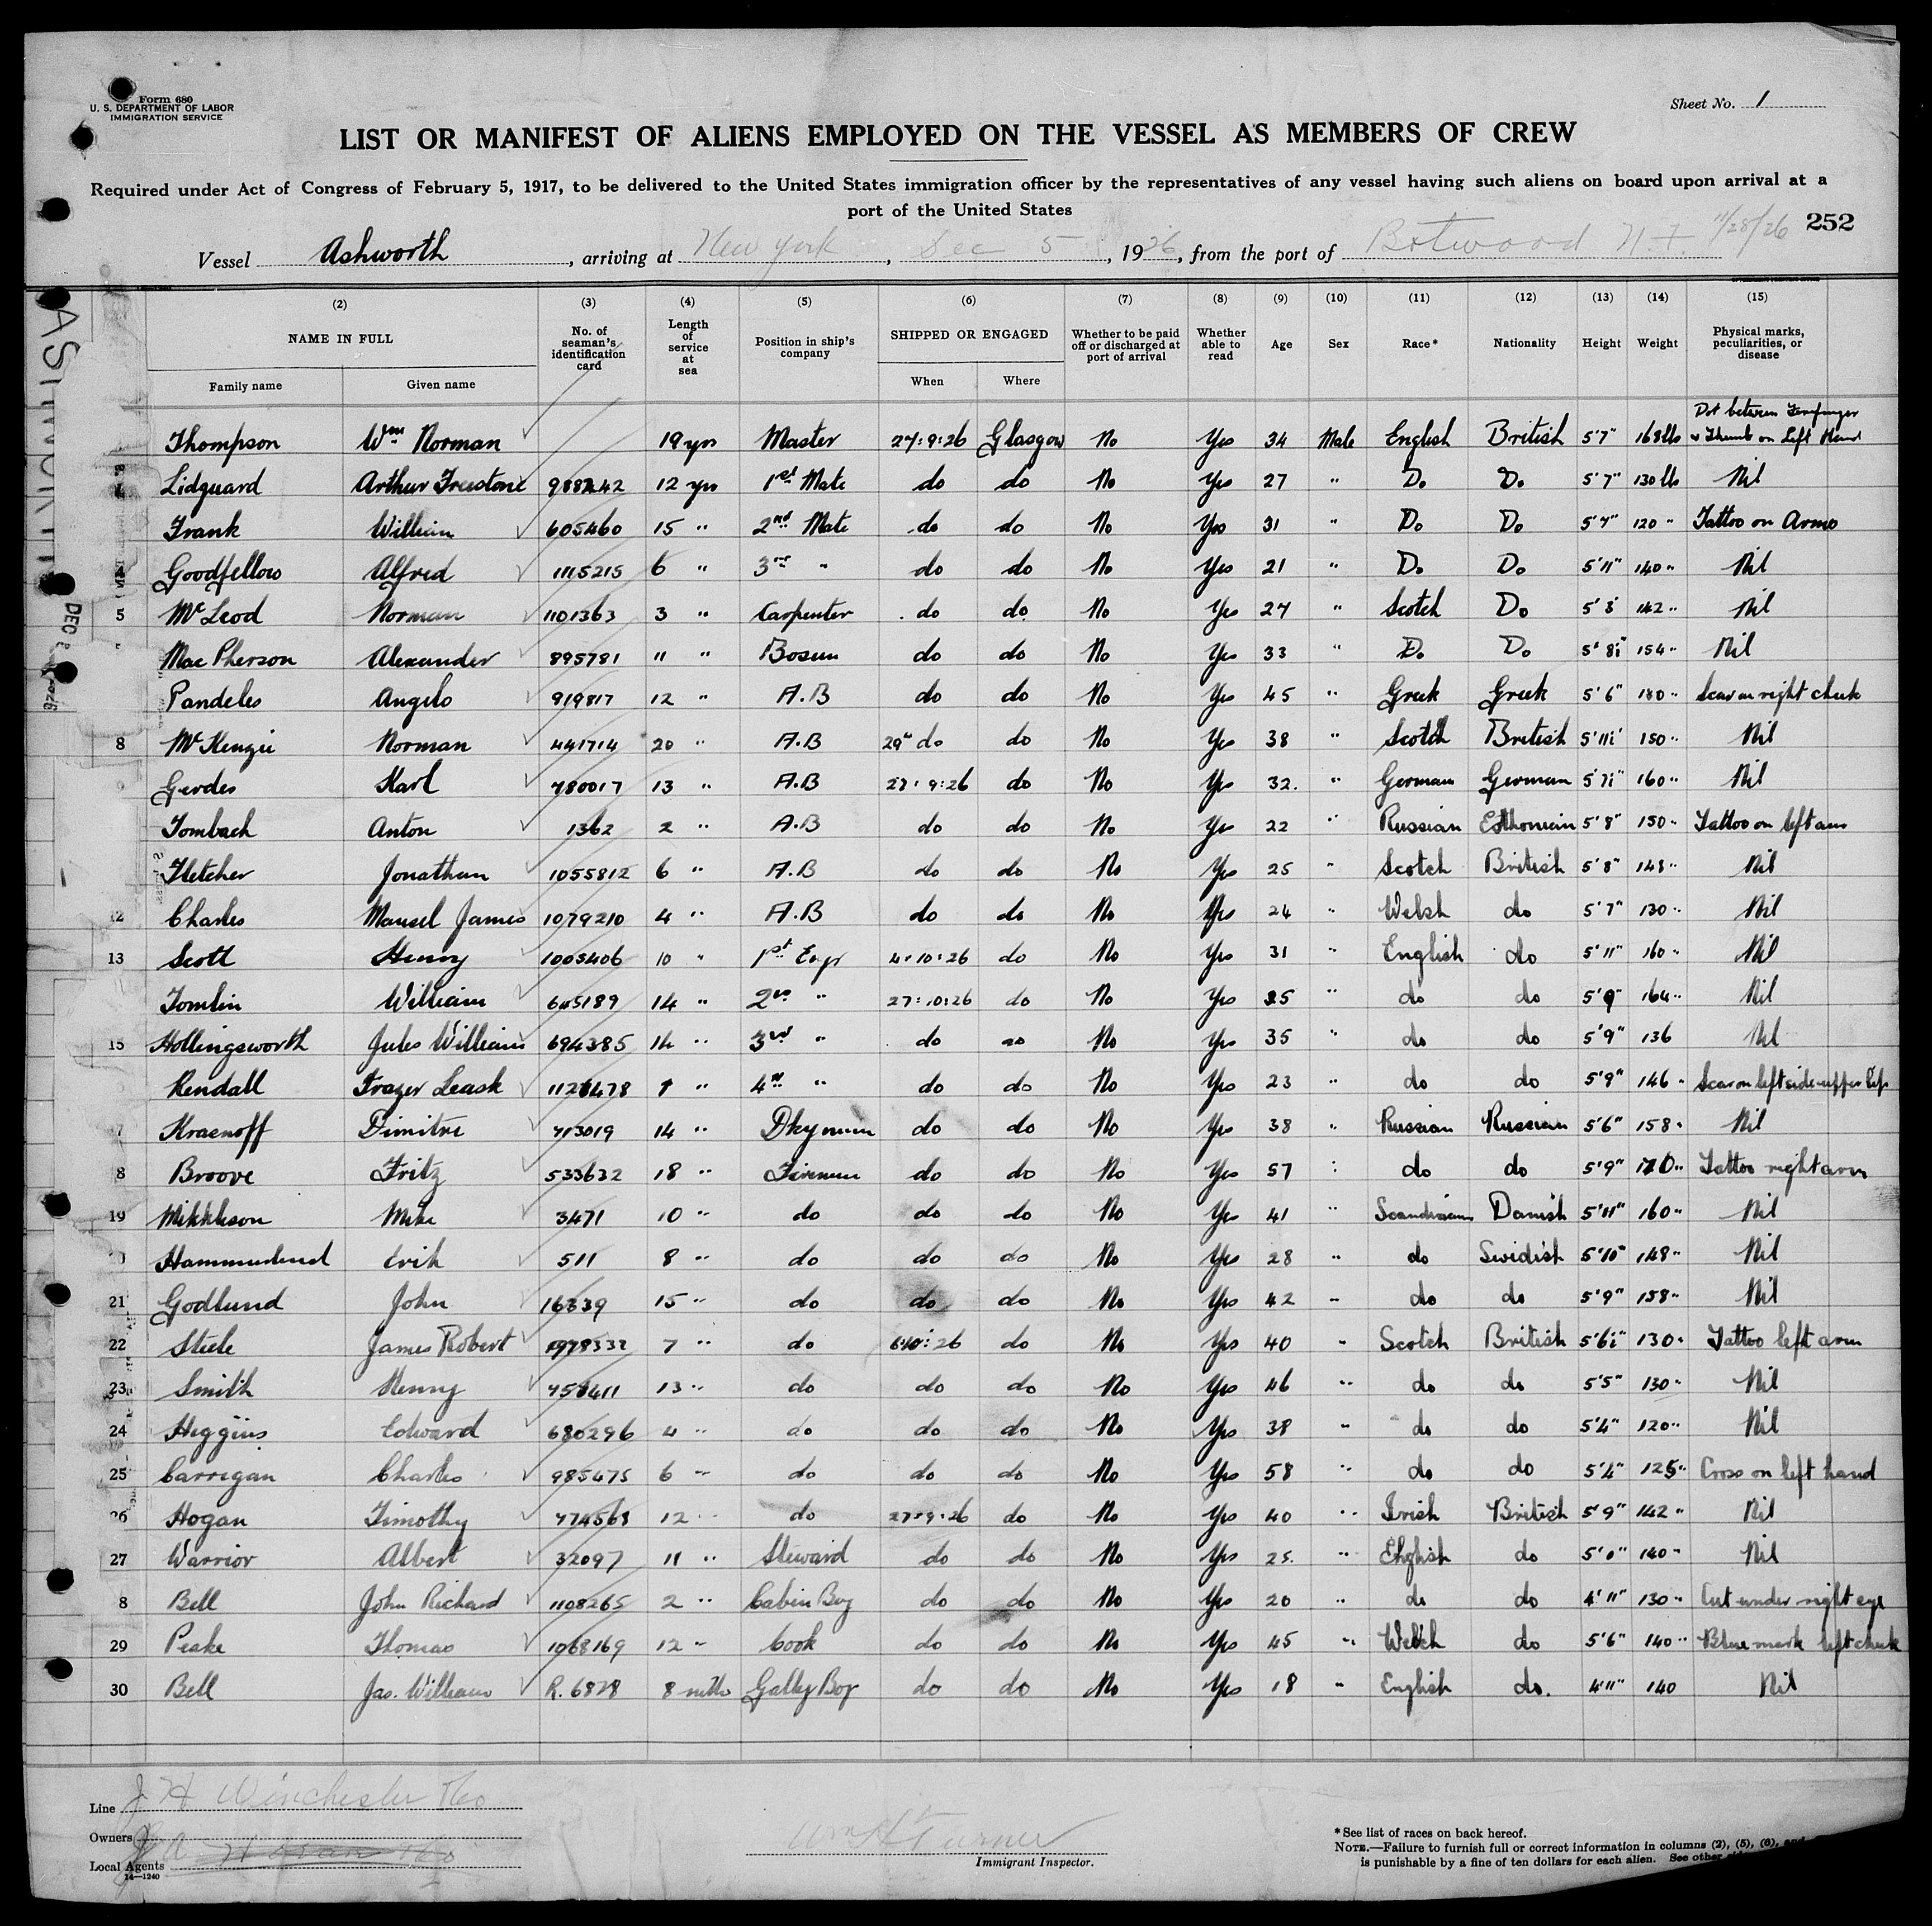 Form 680
U. S. DEPARTMENT OF LABOR
IMMIGRATION SERVICE
Sheet No. 1
LIST OR MANIFEST OF ALIENS EMPLOYED ON THE VESSEL AS MEMBERS OF CREW
Required under Act of Congress of February 5, 1917, to be delivered to the United States immigration officer by the representatives of any vessel having such aliens on board upon arrival at a
port of the United States
11/28/26 252
Vessel Ashworth, arriving at New York, Dec 5, 1926, from the port of Botwood N.F.
(2) (3) (4) (5) (6) (7) (8) (9) (10) (11) (12) (13) (14) (15)
NAME IN FULL No. of seaman's identification card Length of service at sea Position in ship's company SHIPPED OR ENGAGED Whether to be paid off or discharged at port of arrival Whether able to read Age Sex Race* Nationality Height Weight Physical marks, peculiarities, or disease
Family name Given name When Where
Thompson Wm Norman 19 yrs Master 27:9:26 Glasgow No Yes 34 Male English British 5'7" 168 lbs Dot between Forefinger & Thumb on Left Hand
Lidguard Arthur Freestone 988242 12 yrs 1st Mate do do No Yes 27 " Do Do 5'7" 130 lbs Nil
Frank William 605460 15 " 2nd Mate do do No Yes 31 " Do Do 5'7" 120 " Tattoo on Arms
Goodfellow Alfred 1115215 6 " 3rd " do do No Yes 21 " Do Do 5'11" 140 " Nil
5 McLeod Norman 1101363 3 " Carpenter do do No Yes 27 " Scotch Do 5'8 142 " Nil
MacPherson Alexander 895781 11 " Bosun do do No Yes 33 " Do Do 5'8½ 154 " Nil
Pandeles Angelo 919817 12 " A.B do do No Yes 45 " Greek Greek 5'6" 180 " Scar on right cheek
8 McKenzie Norman 441714 20 " A.B 29" do do No Yes 38 " Scotch British 5'11½ 150 " Nil
Gerdes Karl 780017 13 " A.B 27:9:26 do No Yes 32 " German German 5'7½ 160 " Nil
Tombach Anton 1362 2 " A.B do do No Yes 22 " Russian Esthonian 5'8" 150 " Tattoo on left arm
Fletcher Jonathan 1055812 6 " A.B do do No Yes 25 " Scotch British 5'8" 148 " Nil
12 Charles Mansel James 1079210 4 " A.B do do No Yes 24 " Welsh do 5'7" 130 " Nil
13 Scott Henry 1005406 10 " 1st Engr 4:10:26 do No Yes 31 " English do 5'11" 160 " Nil
Tomlin William 645189 14 " 2nd " 27:10:26 do No Yes 35 " do do 5'9" 164 " Nil
15 Hollingsworth Jules William 694385 14 " 3rd " do do No Yes 35 " do do 5'9" 136 Nil
Kendall Frazer Leask 1121478 1 " 4th " do do No Yes 23 " do do 5'9" 146 " Scar on left side upper lip
7 Krasnoff Dimitri 713019 14 " Dkyman do do No Yes 38 " Russian Russian 5'6" 158 " Nil
8 Broove Fritz 533632 18 " Fireman do do No Yes 57 " do do 5'9" 170 " Tattoo right arm
19 Mikkleson Mike 3471 10 " do do do No Yes 41 " Scandinavian Danish 5'11" 160 " Nil
Hammurlund Erik 511 8 " do do do No Yes 28 " do Swidish 5'10" 148 " Nil
21 Godlund John 16339 15 " do do do No Yes 42 " do do 5'9" 158 " Nil
22 Steele James Robert 978332 7 " do 6:10:26 do No Yes 40 " Scotch British 5'6½" 130 " Tattoo left arm
23 Smith Henry 758411 13 " do do do No Yes 46 " do do 5'5" 130 " Nil
24 Heggins Edward 680296 4 " do do do No Yes 38 " do do 5'4" 120 " Nil
25 Carrigan Charles 985475 6 " do do do No Yes 58 " do do 5'4" 125 " Cross on left hand
26 Hogan Timothy 774568 12 " do 27:9:26 do No Yes 40 " Irish British 5'9" 142 " Nil
27 Warrior Albert 32097 11 " Steward do do No Yes 25 " English do 5'0" 140 " Nil
8 Bell John Richard 1108265 2 " Cabin Boy do do No Yes 20 " do do 4'11" 130 " Cut under right eye
29 Peake Thomas 1068169 12 " Cook do do No Yes 45 " Welch do 5'6" 140 " Blue mark left cheek
30 Bell Jas. William R. 6828 8 mths Galley Boy do do No Yes 18 " English do. 4'11" 140 Nil
Line J H Winchester & Co
Owners
Local Agents
14—1240
Wm H Turner
Immigrant Inspector.
*See list of races on back hereof.
NOTE.—Failure to furnish full or correct information in columns (2), (5), (6), and
is punishable by a fine of ten dollars for each alien. See other